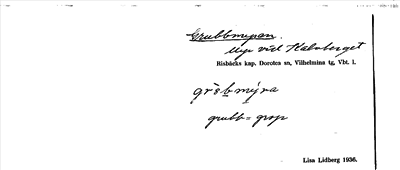 Grubbmyran.
Myr vid Kalvberget
Risbäcks kap. Dorotea sn, Vilhelmina tg, Vbt. l.
grubb = grop
Lisa Lidberg 1936.